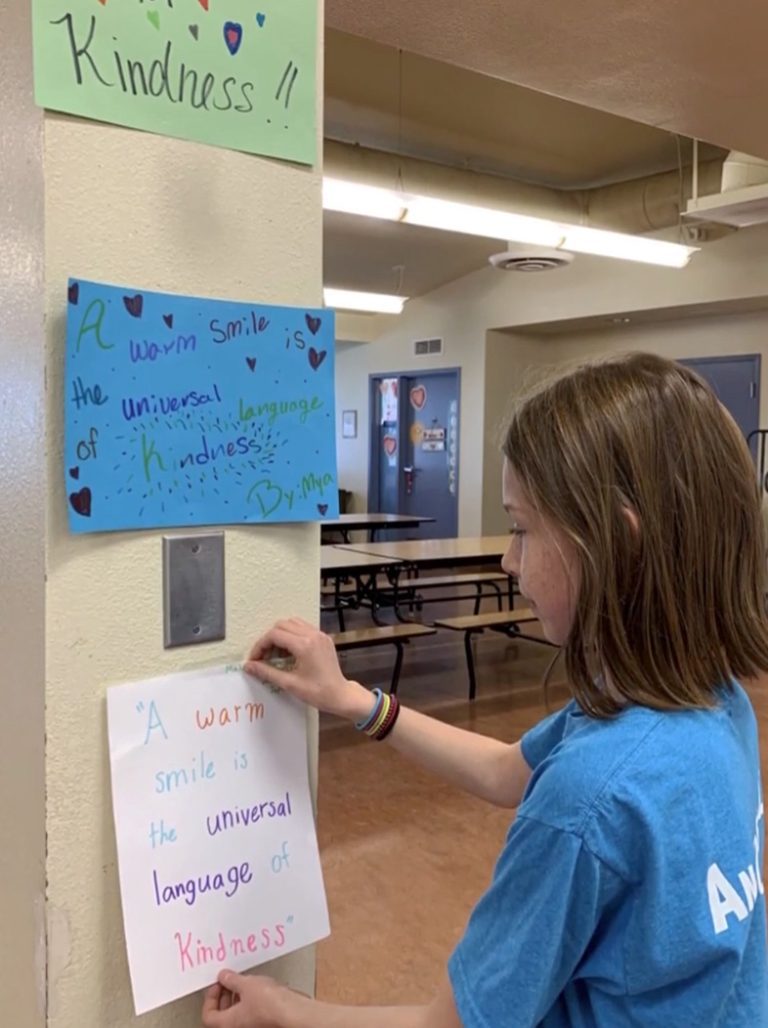 Kindness!!
A warm smile is
the universal language
of Kindness
By: Mya
"A warm
smile is
the universal
language of
Kindness"